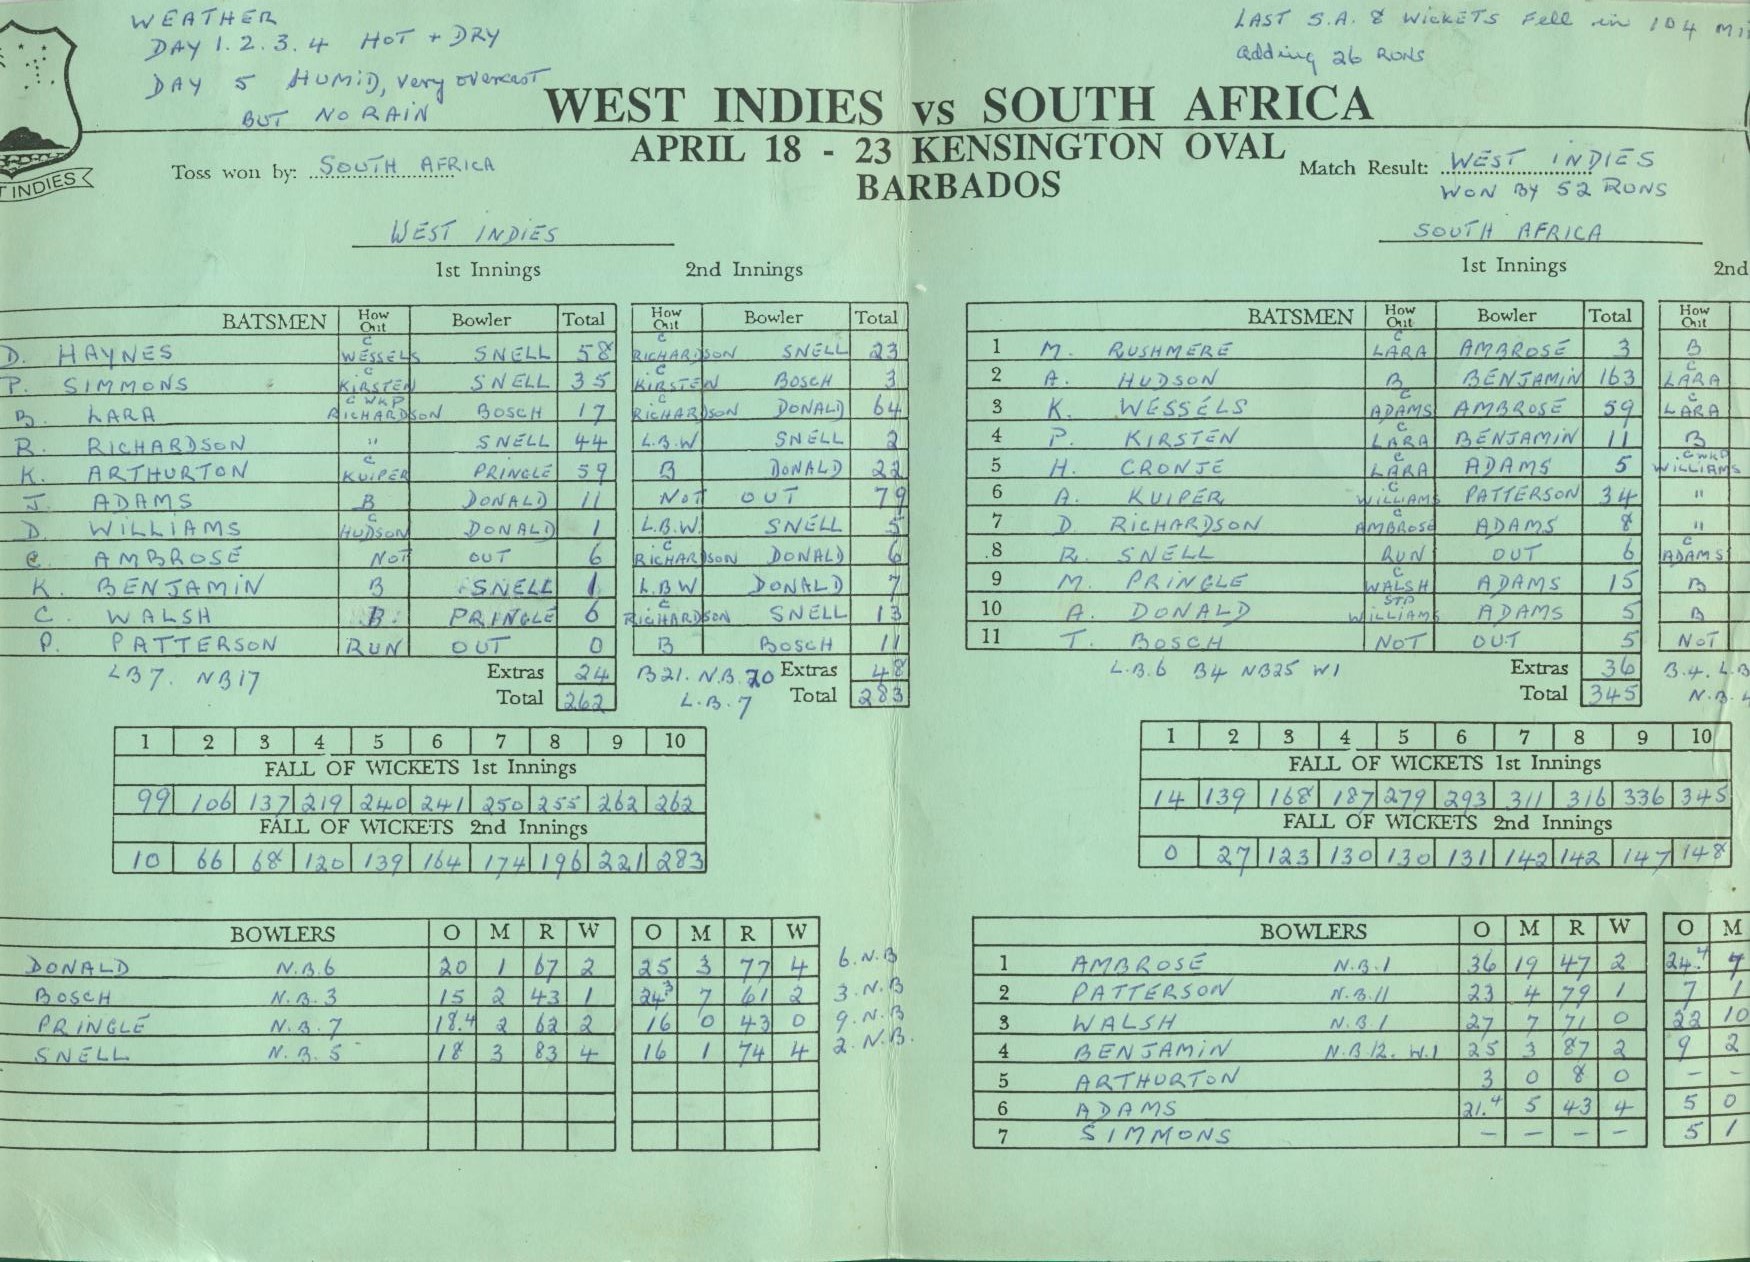 WEATHER
DAY 1.2.3.4 HOT + DRY
DAY 5 HUMID, very overcast
BUT NO RAIN
LAST S.A. 8 WICKETS Fell in 104
adding 26 RUNS
WEST INDIES vs SOUTH AFRICA
APRIL 18 - 23 KENSINGTON OVAL
BARBADOS
INDIES
Toss won by: SOUTH AFRICA
Match Result: WEST INDIES
WON BY 52 RUNS
WEST INDIES
1st Innings 2nd Innings
BATSMEN How Out Bowler Total How Out Bowler Total
D. HAYNES C WESSELS SNELL 58 C RICHARDSON SNELL 23
P. SIMMONS C KIRSTEN SNELL 35 C KIRSTEN BOSCH 3
B. LARA C WKP RICHARDSON BOSCH 17 C RICHARDSON DONALD 64
R. RICHARDSON " SNELL 44 L.B.W SNELL 2
K. ARTHURTON C KUIPER PRINGLE 59 B DONALD 22
J. ADAMS B DONALD 11 NOT OUT 79
D. WILLIAMS C HUDSON DONALD 1 L.B.W. SNELL 5
C. AMBROSE NOT OUT 6 C RICHARDSON DONALD 6
K. BENJAMIN B SNELL 1 L.B.W DONALD 7
C. WALSH B. PRINGLE 6 C RICHARDSON SNELL 13
P. PATTERSON RUN OUT 0 B BOSCH 11
LB7. NB17 Extras 24 B21. N.B.20 Extras 48
Total 262 L.B.7 Total 283
1 2 3 4 5 6 7 8 9 10
FALL OF WICKETS 1st Innings
99 106 137 219 240 241 250 255 262 262
FALL OF WICKETS 2nd Innings
10 66 68 120 139 164 174 196 221 283
BOWLERS O M R W O M R W
DONALD N.B.6 20 1 67 2 25 3 77 4 6.N.B
BOSCH N.B.3 15 2 43 1 24.3 7 61 2 3.N.B
PRINGLE N.B.7 18.4 2 62 2 16 0 43 0 9.N.B
SNELL N.B.5 18 3 83 4 16 1 74 4 2.N.B.
SOUTH AFRICA
1st Innings 2nd
BATSMEN How Out Bowler Total How Out
1 M. RUSHMERE C LARA AMBROSE 3 B
2 A. HUDSON B BENJAMIN 163 C LARA
3 K. WESSELS C ADAMS AMBROSE 59 C LARA
4 P. KIRSTEN C LARA BENJAMIN 11 B
5 H. CRONJE C LARA ADAMS 5 C WKP WILLIAMS
6 A. KUIPER C WILLIAMS PATTERSON 34 "
7 D. RICHARDSON C AMBROSE ADAMS 8 "
8 R. SNELL RUN OUT 6 C ADAMS
9 M. PRINGLE C WALSH ADAMS 15 B
10 A. DONALD STP WILLIAMS ADAMS 5 B
11 T. BOSCH NOT OUT 5 NOT
L.B.6 B4 NB25 W1 Extras 36 B.4. L.B
Total 345 N.B.
1 2 3 4 5 6 7 8 9 10
FALL OF WICKETS 1st Innings
14 139 168 187 279 293 311 316 336 345
FALL OF WICKETS 2nd Innings
0 27 123 130 130 131 142 142 147 148
BOWLERS O M R W O M
1 AMBROSE N.B.1 36 19 47 2 24.4 7
2 PATTERSON N.B.11 23 4 79 1 7 1
3 WALSH N.B.1 27 7 71 0 22 10
4 BENJAMIN N.B.12. W.1 25 3 87 2 9 2
5 ARTHURTON 3 0 8 0 - -
6 ADAMS 21.4 5 43 4 5 0
7 SIMMONS - - - - 5 1